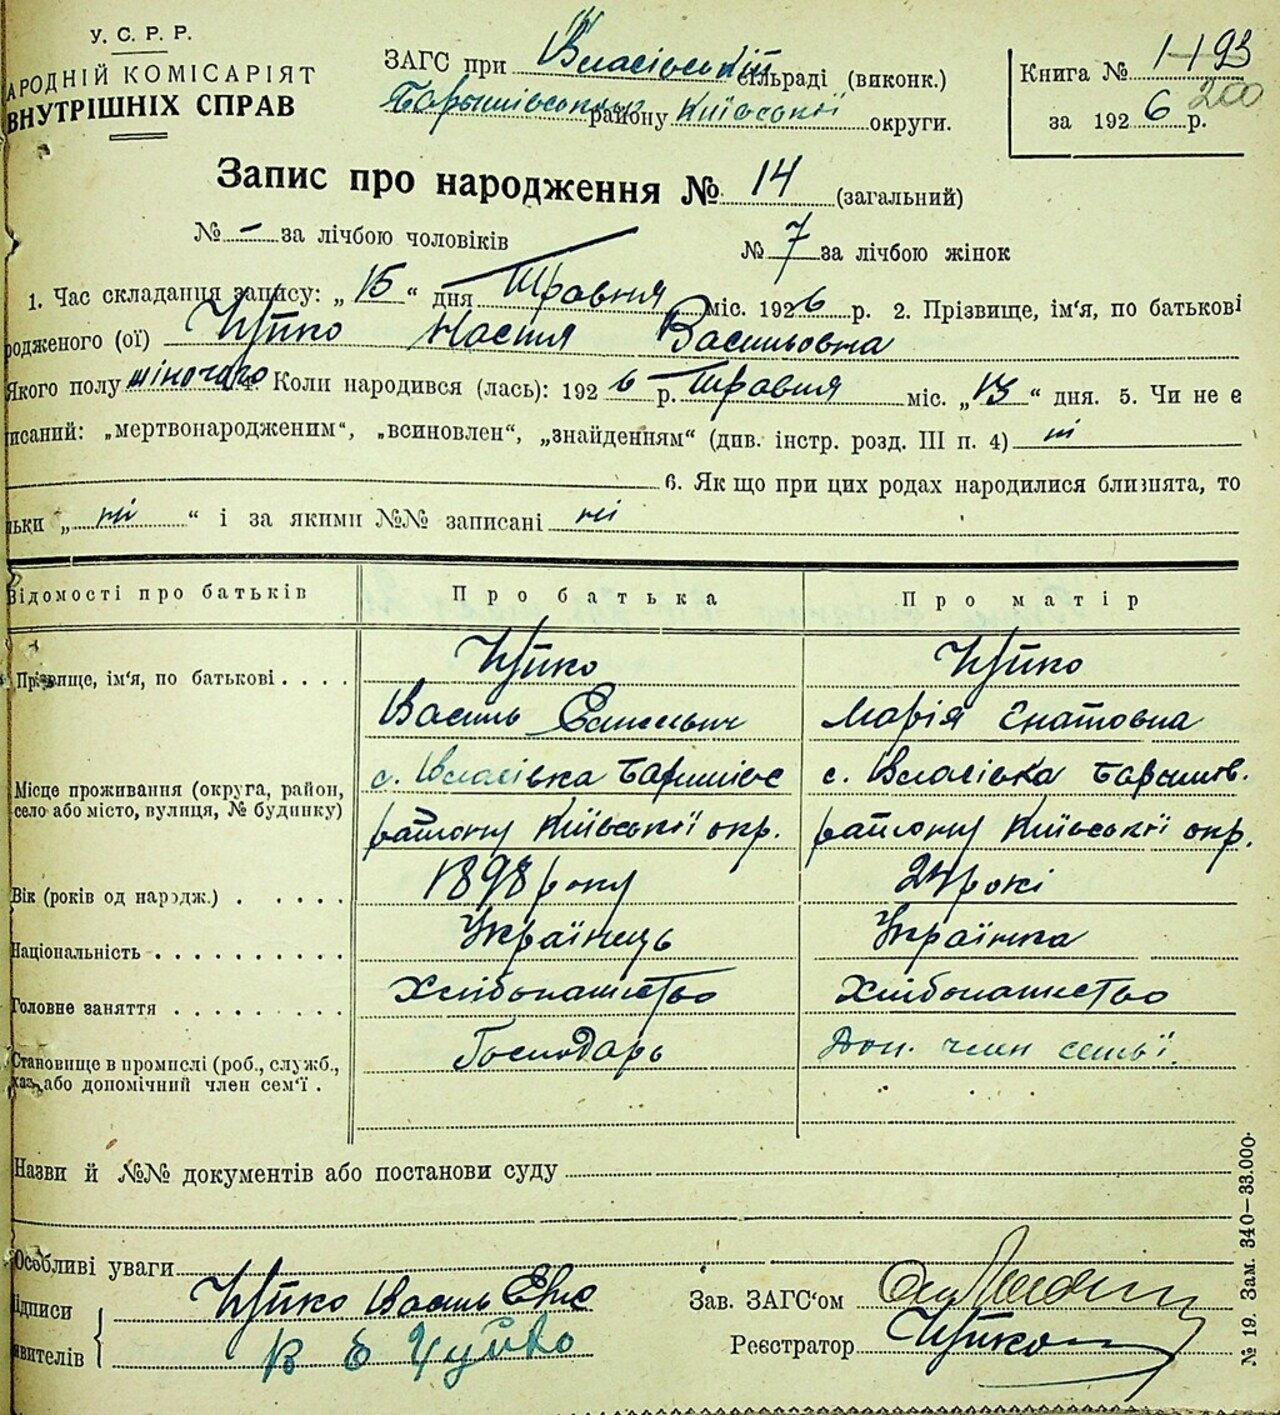 У. С. Р. Р.
АРОДНІЙ КОМІСАРІЯТ
ВНУТРІШНІХ СПРАВ
ЗАГС при Власівській сільраді (виконк.)
району Київської округи.
Книга № 193
200
за 1926 р.
Запис про народження № 14 (загальний)
№ – за лічбою чоловіків
№ 7 за лічбою жінок
1. Час складання запису: „15“ дня Травня міс. 1926 р. 2. Прізвище, ім'я, по батькові
родженого (ої) Чуйко Настя Васильовна
Якого полу жіночого 4. Коли народився (лась): 1926 р. Травня міс. „13“ дня. 5. Чи не є
исаний: „мертвонародженим“, „всиновлен“, „знайденням“ (див. інстр. розд. III п. 4) ні
6. Як що при цих родах народилися близнята, то
ьки „ні“ і за якими №№ записані ні
Відомості про батьків
Про батька
Про матір
Прізвище, ім'я, по батькові . . . .
Чуйко
Василь
Чуйко
Марія Гнатовна
Місце проживання (округа, район,
село або місто, вулиця, № будинку)
с. Власівка Баришівс
району Київської окр.
с. Власівка Баришів.
району Київської окр.
Вік (років од народж.) . . . . .
1898 року
24 рокі
Національність . . . . . . . . . .
Українець
Українка
Головне заняття . . . . . . . . .
Хлібопашество
Хлібопашество
Становище в промислі (роб., служб.,
хаз. або допомічний член сем'ї .
Господарь
Доп. член семьї.
Назви й №№ документів або постанови суду
Особливі уваги
ідписи
явителів
Чуйко Василь
В Е Чуйко
Зав. ЗАГС'ом
Реєстратор Чуйко
№ 19. Зам. 340—33.000.